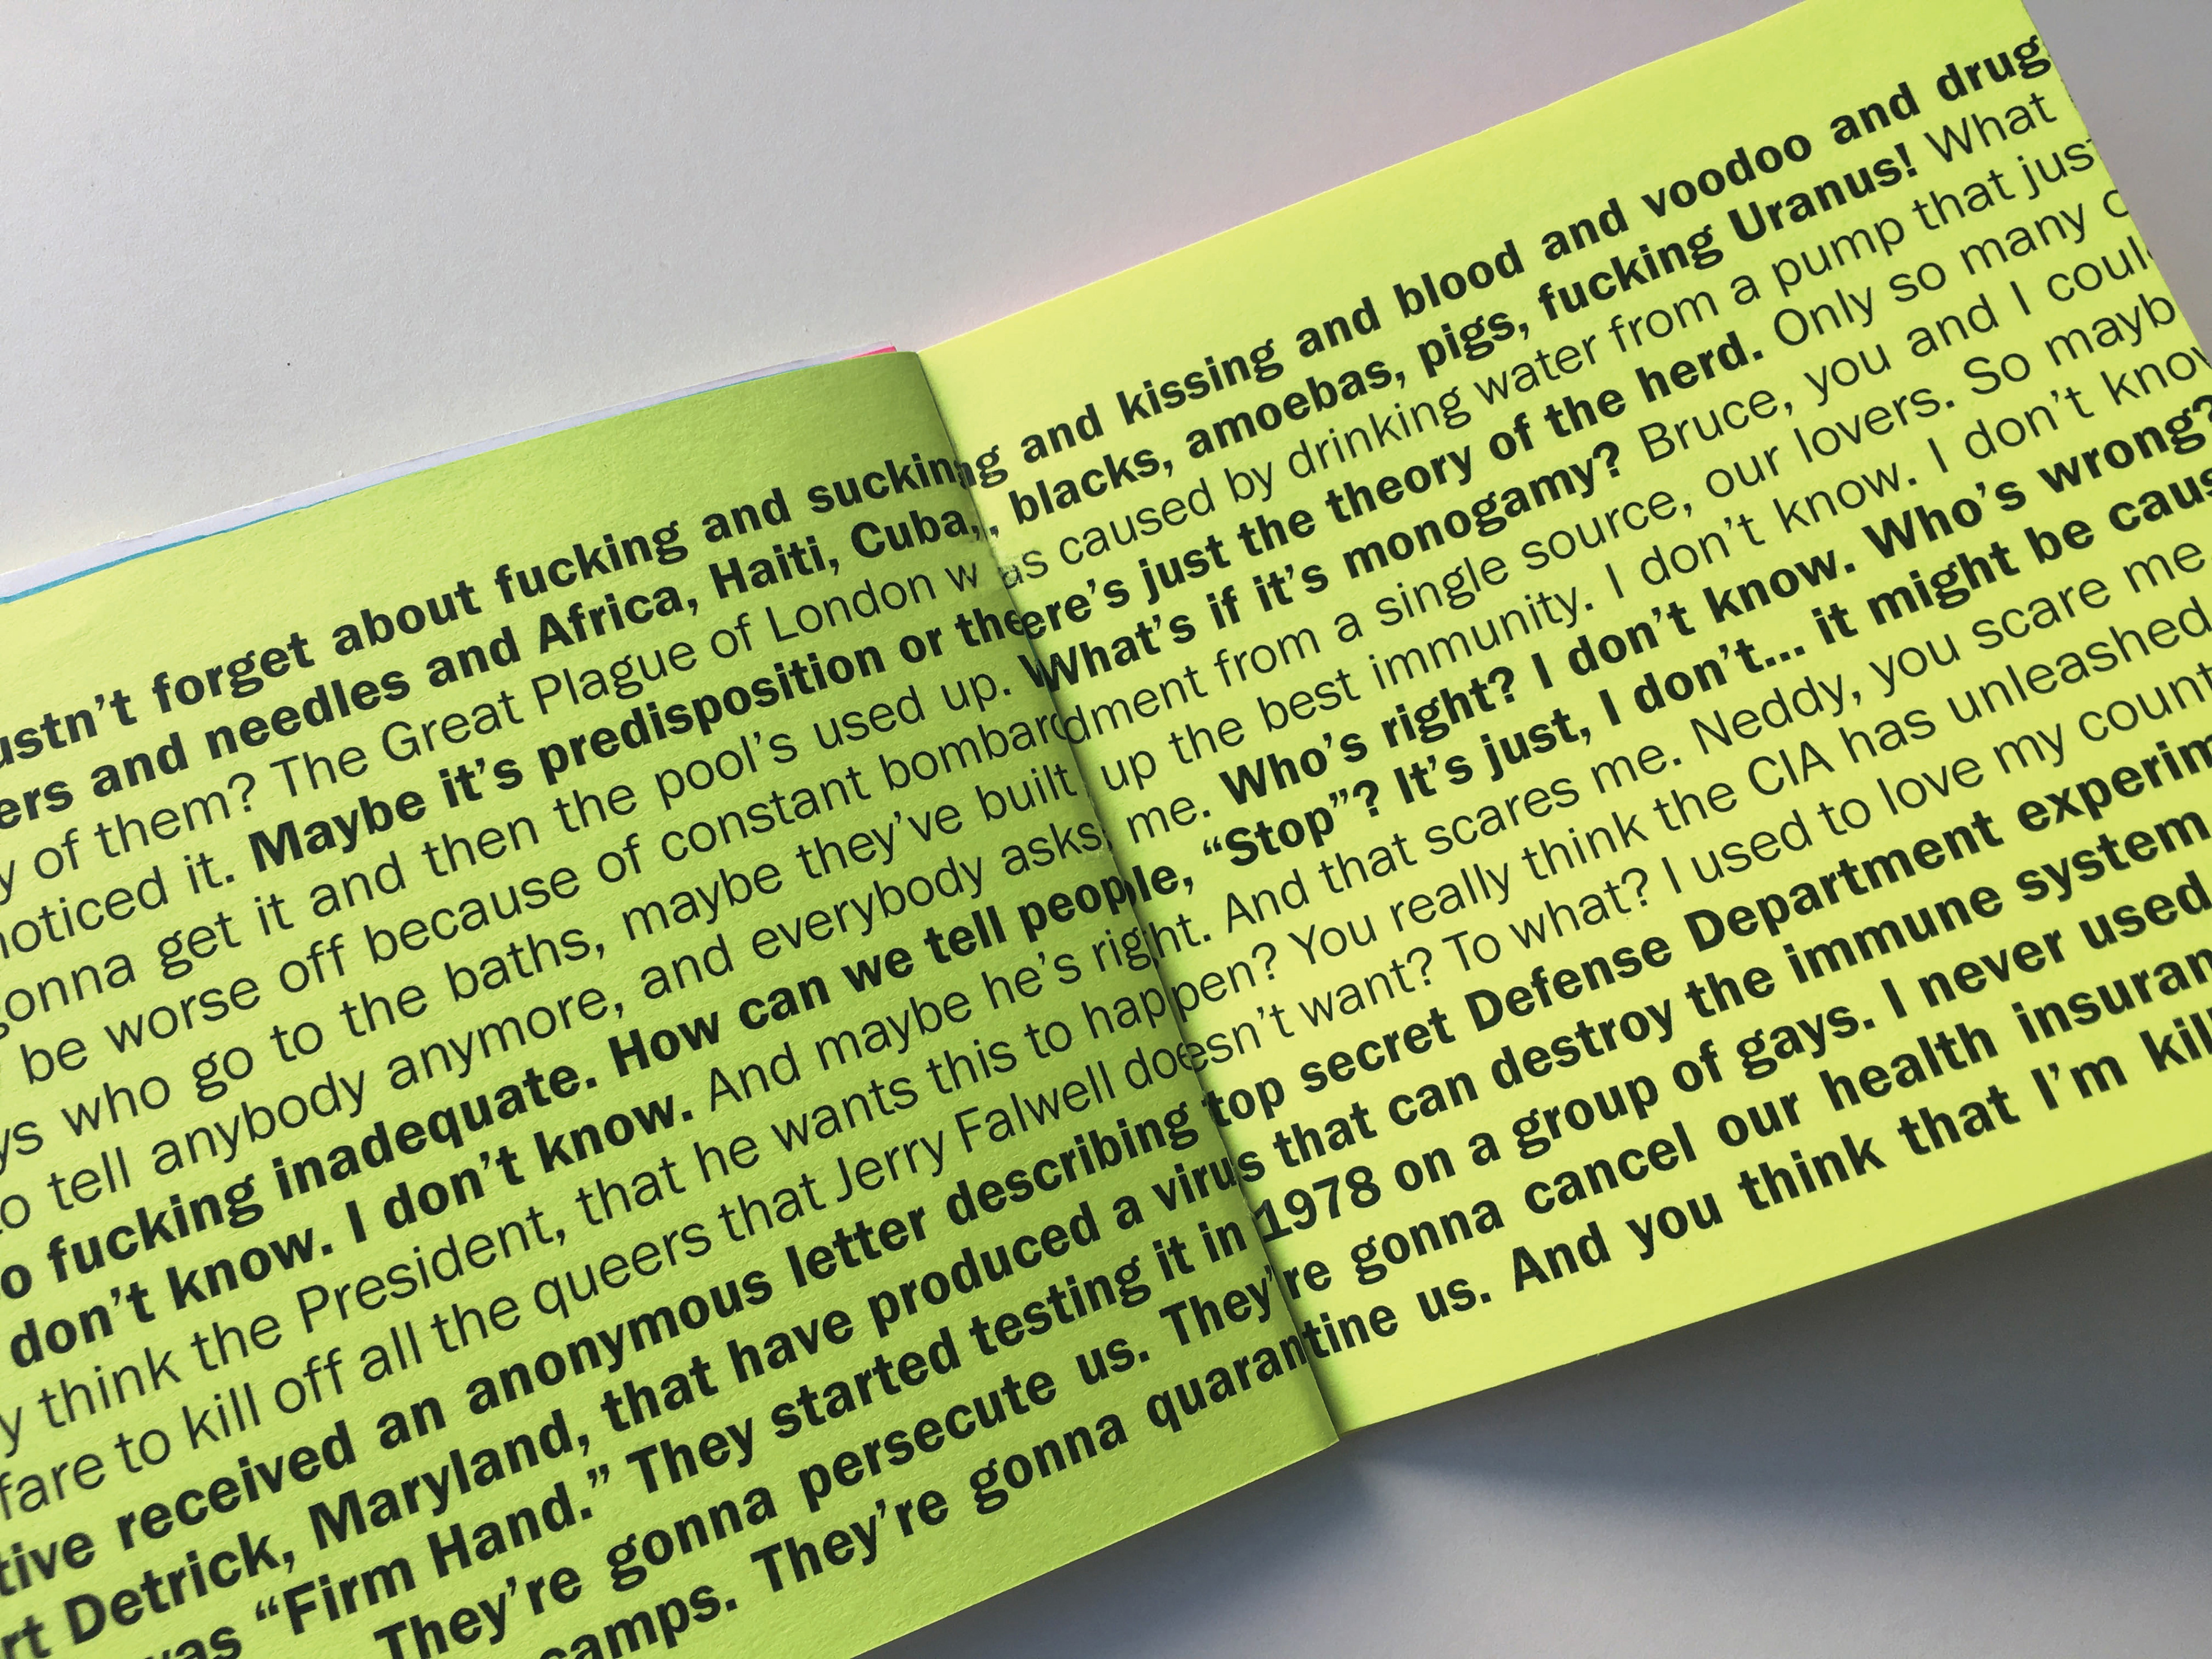 ustn't forget about fucking and sucking and kissing and blood and voodoo and drug
ers and needles and Africa, Haiti, Cuba, blacks, amoebas, pigs, fucking Uranus! What
y of them? The Great Plague of London was caused by drinking water from a pump that just
noticed it. Maybe it's predisposition or there's just the theory of the herd. Only so many
gonna get it and then the pool's used up. What's if it's monogamy? Bruce, you and I could
be worse off because of constant bombardment from a single source, our lovers. So mayb
ys who go to the baths, maybe they've built up the best immunity. I don't know. I don't know
to tell anybody anymore, and everybody asks me. Who's right? I don't know. Who's wrong?
o fucking inadequate. How can we tell people, “Stop”? It's just, I don't... it might be caus
don't know. I don't know. And maybe he's right. And that scares me. Neddy, you scare me
y think the President, that he wants this to happen? You really think the CIA has unleashed
fare to kill off all the queers that Jerry Falwell doesn't want? To what? I used to love my count
tive received an anonymous letter describing top secret Defense Department experim
rt Detrick, Maryland, that have produced a virus that can destroy the immune system
was “Firm Hand.” They started testing it in 1978 on a group of gays. I never used
They're gonna persecute us. They're gonna cancel our health insuran
camps. They're gonna quarantine us. And you think that I'm kil